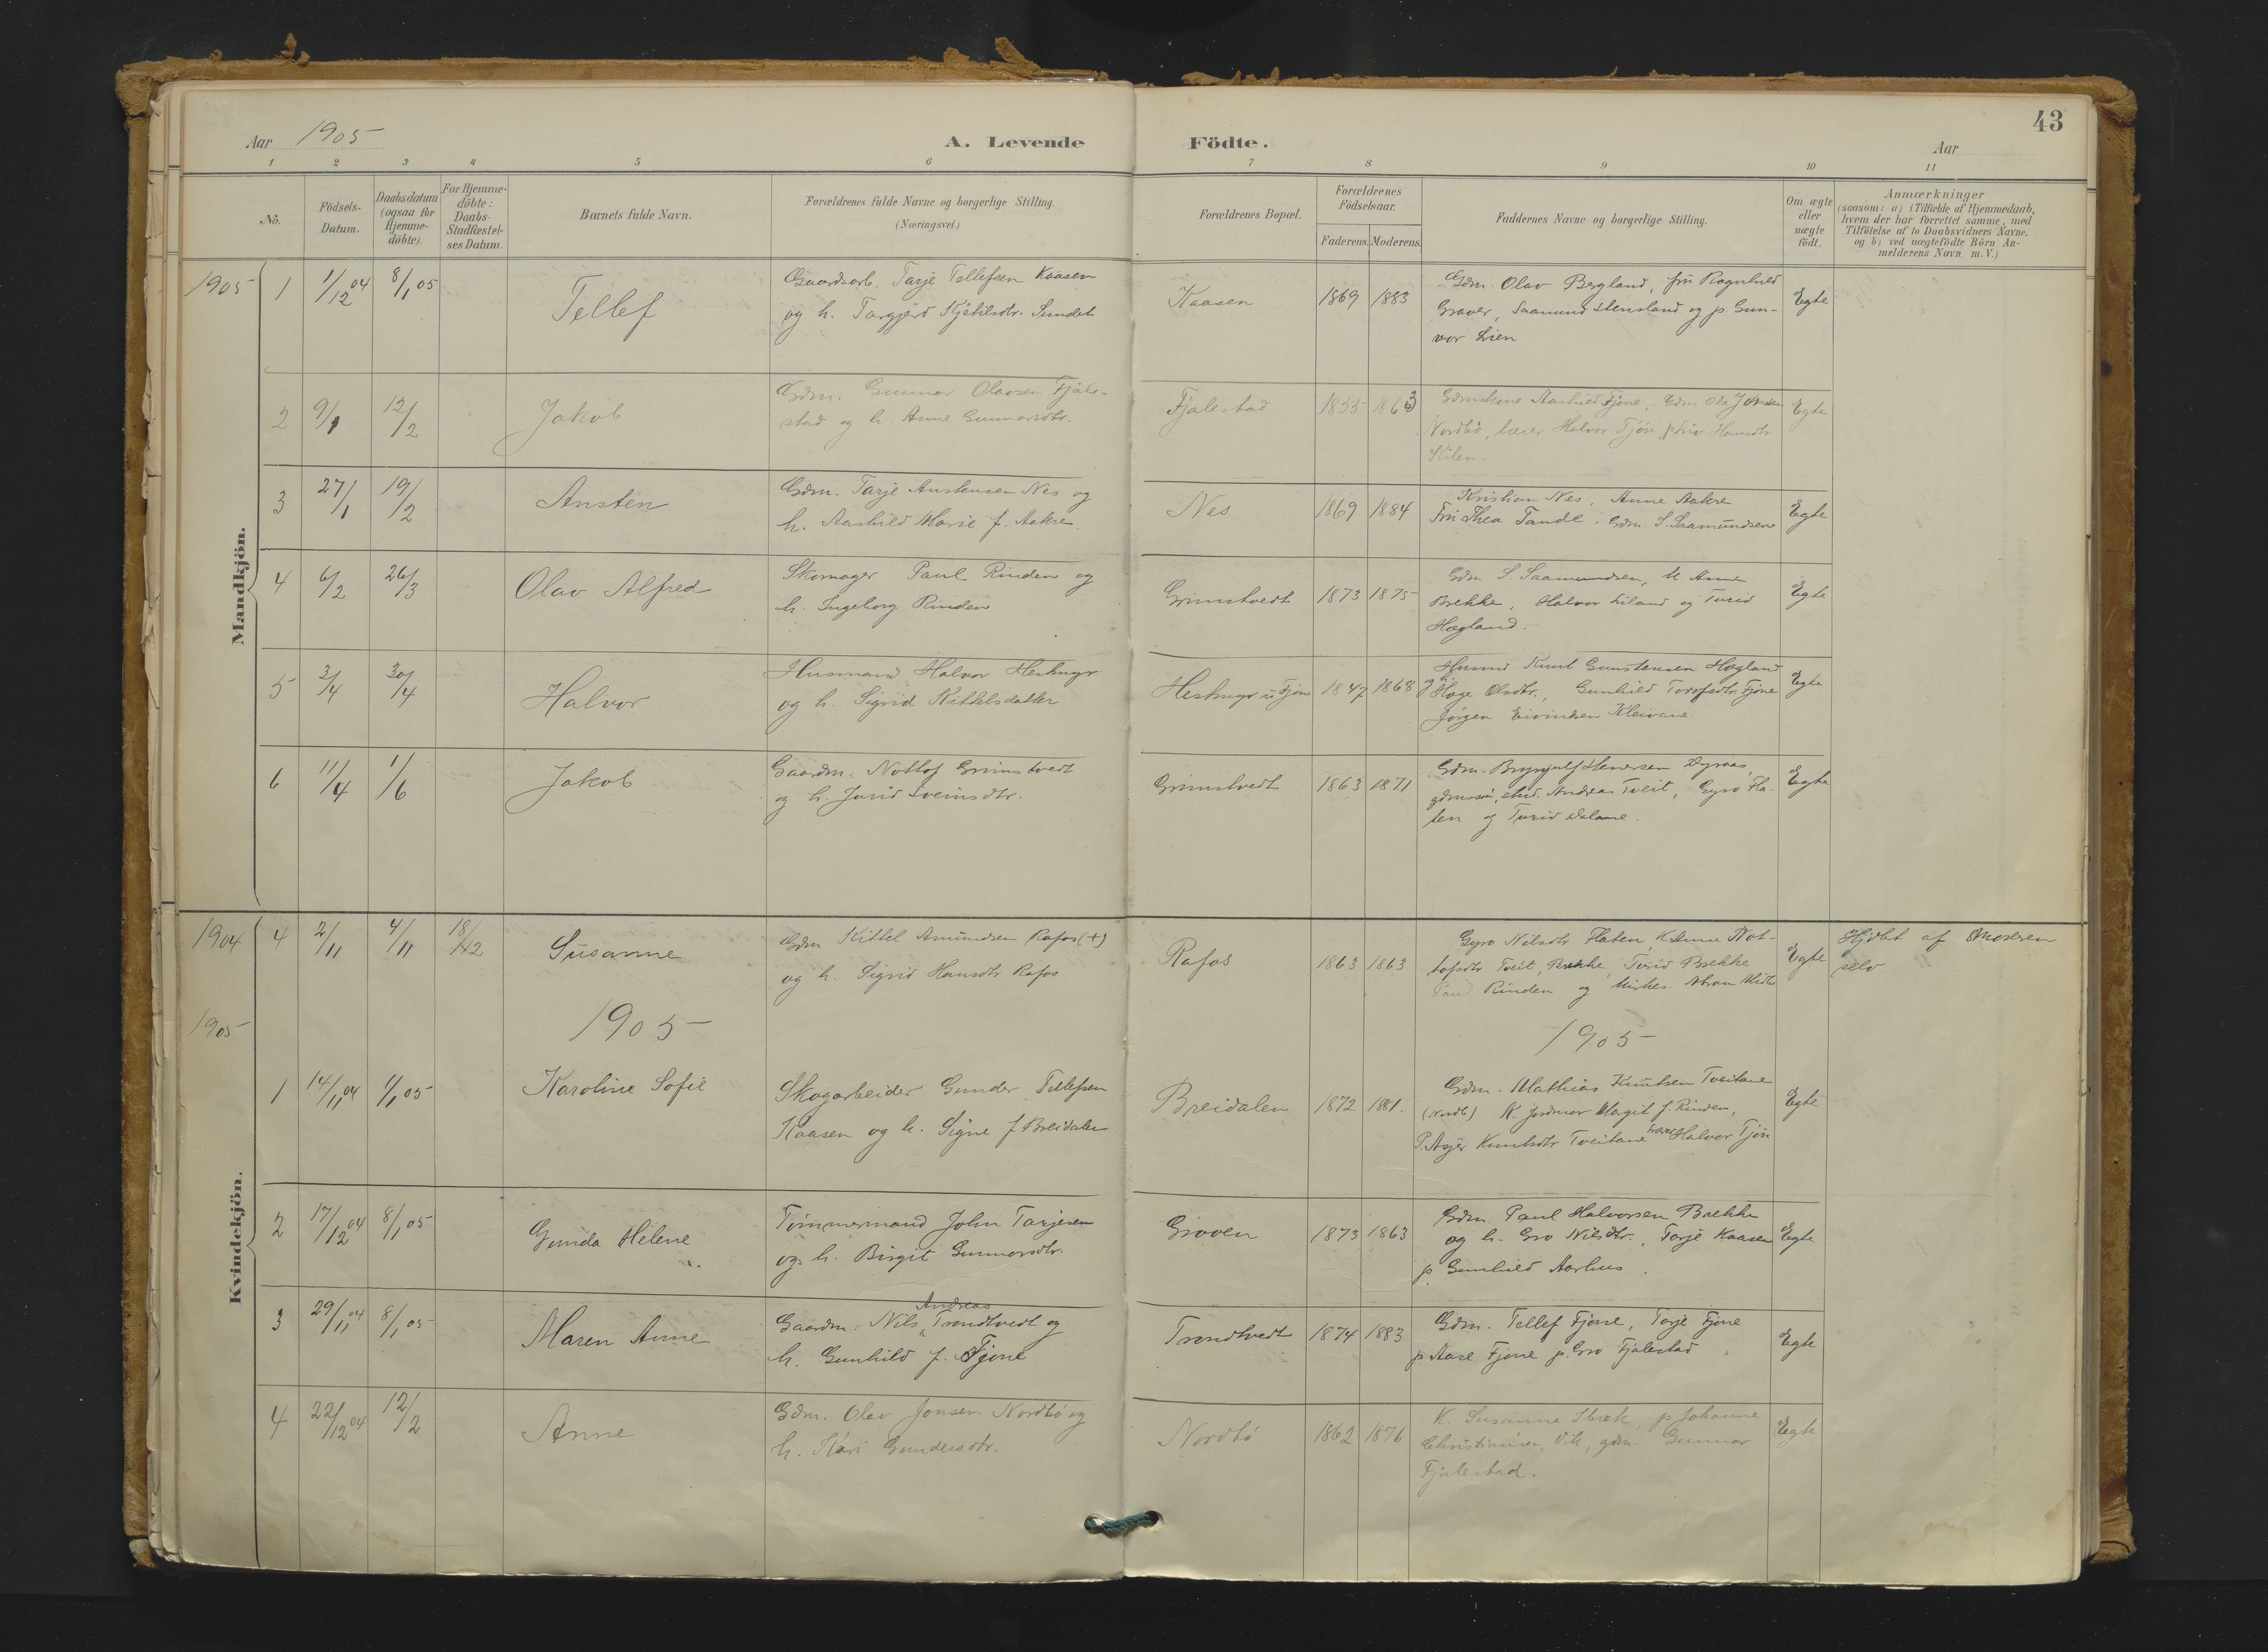 43
Aar 1905
A. Levende Födte.
Aar
1 2 3 4 5 6 7 8 9 10 11
No.
Födsels-
Datum.
Daabsdatum
(ogsaa for
Hjemme-
döbte).
For Hjemme-
döbte:
Daabs-
Stadfæstel-
ses Datum.
Barnets fulde Navn.
Forældrenes fulde Navne og borgerlige Stilling.
(Næringsvei.)
Forældrenes Bopæl.
Forældrenes
Födselsaar.
Faderens. Moderens.
Faddernes Navne og borgerlige Stilling.
Om ægte
eller
uægte
födt.
Anmærkninger
(saasom: a) i Tilfælde af Hjemmedaab,
hvem der har forrettet samme, med
Tilföielse af to Daabsvidners Navne.
og b) ved uægtefödte Börn An-
melderens Navn m. V.)
Mandkjön.
1905 1 1/12 04 8/1 05
Tellef
Gaardsarb. Tarje Tellefsen Kaasen
og h. Torgjerd Kjetilsdtr. Sundet
Kaasen
1869 1883
Gdm. Olav Bergland, fru Ragnhild
Graver, Saamund Stensland og p. Gun-
vor Lien
Egte
2 9/1 12/2
Jakob
Gdm. Gunnar Olavsen Fjale-
stad og h. Anne Gunnarsdtr.
Fjalestad
1855 1863
Gdmskone Aashild Fjone, Gdm Ola Jonsen
Nordbö, lærer Halvor Tjön, Hansdtr
Kilen.
Egte
3 27/1 19/2
Ansten
Gdm. Tarje Anstensen Nes og
h. Aashild Marie f. Aakre.
Nes
1869 1884
Kristian Nes, Anne Aakre
Fru Thea Tande. Gdm. S. Saamundsen
Egte
4 6/2 26/3
Olav Alfred
Skomager Paul Rinden og
h. Ingeborg Rinden
Grimstvedt
1873 1875
Gdm S. Saamundsen, K Anne
Brekke, Halvor Liland og Turid
Hægland.
Egte
5 3/4 30/4
Halvor
Husmand Halvor Hestmyr
og h. Sigrid Kittelsdatter
Hestmyr u Fjone
1847 1868
Husmd Knut Gunstensen Hægland
og h. Hæge Olsdtr., Gunhild Torofsdtr. Fjone
Jörgen Eivindsen Kleivane
Egte
6 11/4 1/6
Jakob
Gaardm. Nottof Grimstvedt
og h. Jurid Sveinsdtr.
Grimstvedt
1863 1871
Gdm. Brynjulf Henersen Dyraas,
gdmssön, stud. Andreas Tveit, Gyro Fla-
ten og Turid Dalane.
Egte
Kvindekjön.
1904 4 2/11 4/11 18/12
Susanne
Gdm Kittel Amundsen Rafos (+)
og h. Sigrid Hansdtr Rafos
Rafos
1863 1863
Gyro Nilsdtr Flaten, K. Anne Not-
tofsdtr Tveit, Brekke, Turid Brekke
Paul Rinden og Kirkes. Abram Midtb
Egte
Hjdbt af Modren
selv
1905
1905
1905
1 14/11 04 1/1 05
Karoline Sofie
Skogarbeider Gunder Tellefsen
Kaasen og h. Signe f Breidalen
Breidalen
1872 1881.
Gdm. Mathias Knutsen Tveitane
(Nordb) K. Jordmor Margit f. Rinden,
P. Asjer Knutsdtr Tveitane lærer Halvor Tjön
Egte
2 17/12 04 8/1 05
Gunda Helene
Tömmermand John Tarjesen
og h. Birgit Gunnarsdtr.
Groven
1873 1863
Gdm. Paul Halvorsen Brekke
og h. Gro Nilsdtr., Tarje Kaasen
p Gunhild Aarhus
Egte
3 29/11 04 8/1 05
Maren Anne
Andreas
Gaardm. Nils Trondtvedt og
h. Gunhild f. Fjone
Trondtvedt
1874 1883
Gdm. Tellef Fjone, Tarje Fjone
p Aase Fjone p. Gro Fjalestad
Egte
4 22/12 04 12/2
Anne
Gdm. Olav Jonsen Nordbö og
h. Kari Gundersdtr.
Nordbö
1862 1876
K. Susanne, p Johanne
Christiansen, Vik, gdm. Gunnar
Fjalestad.
Egte